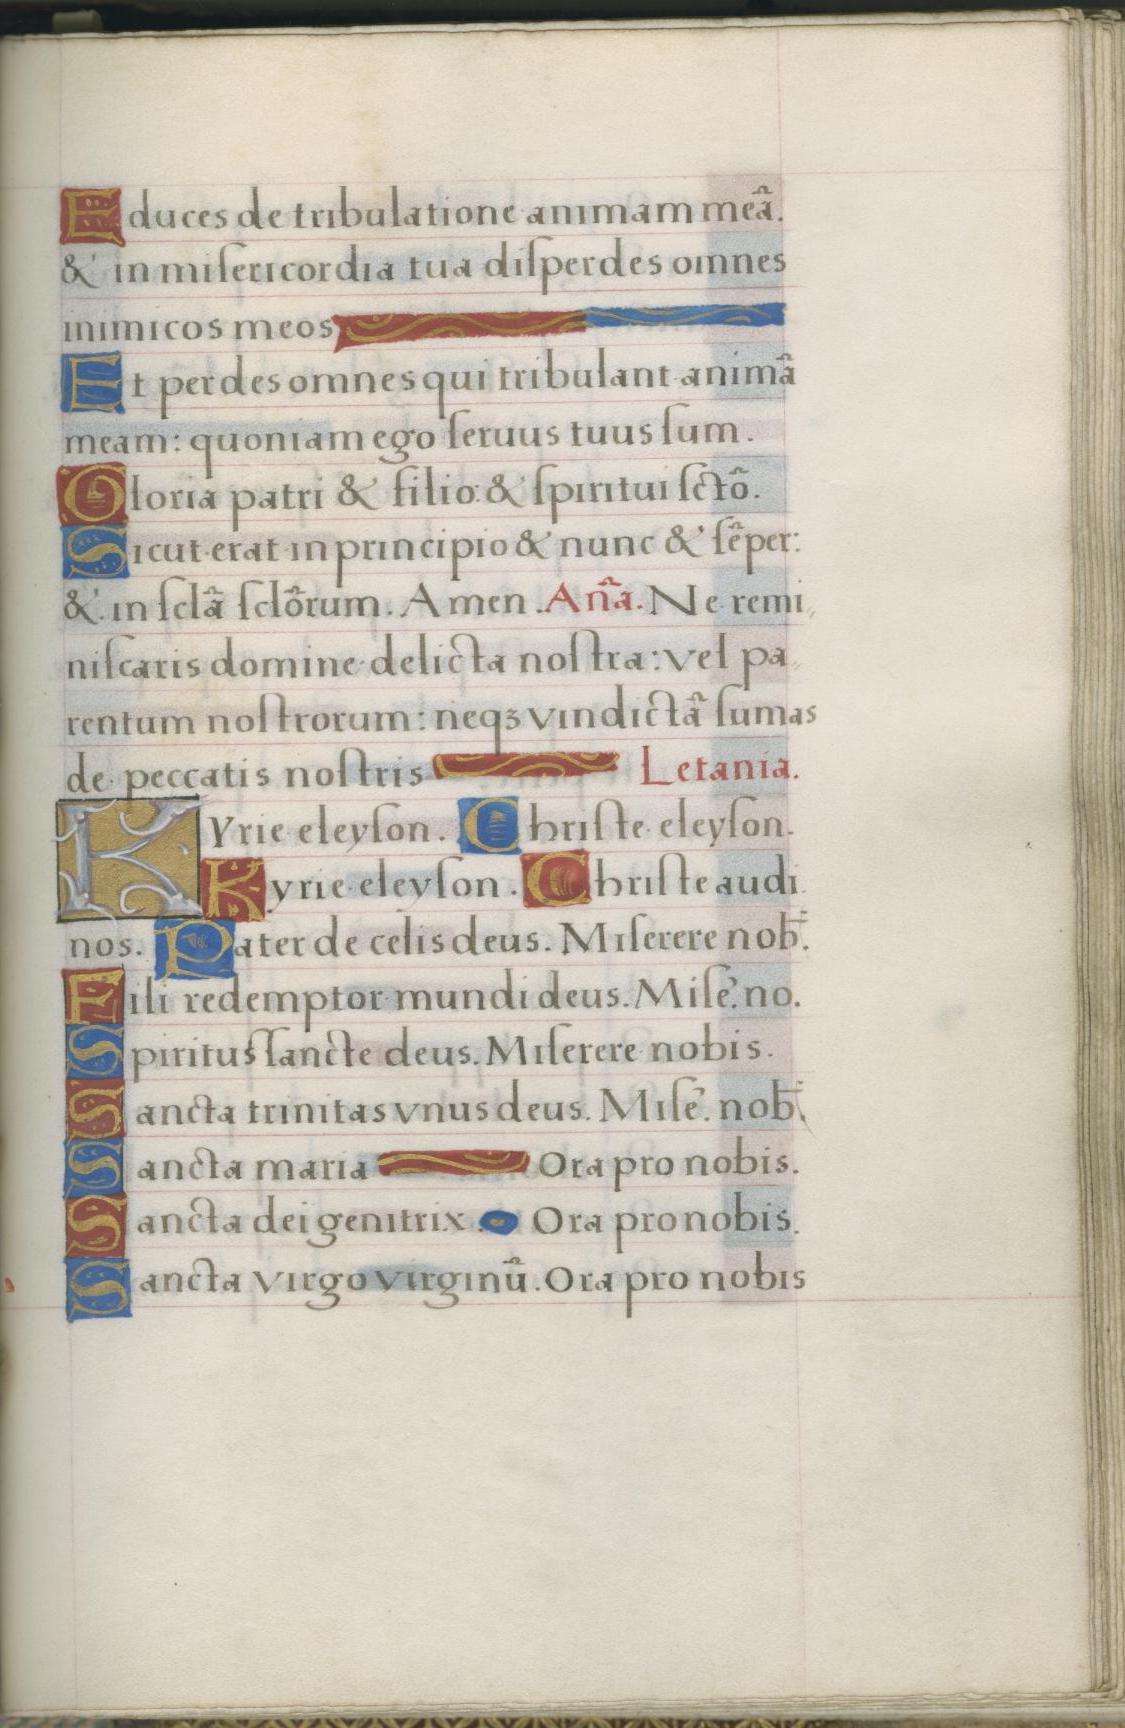 Educes de tribulatione animam meã.
& in miſericordia tua diſperdes omnes
inimicos meos
Et perdes omnes qui tribulant animã
meam: quoniam ego ſeruus tuus ſum.
Gloria patri & filio & ſpiritui ſctõ.
Sicut erat in principio & nunc & ſẽper:
& in ſclã ſclõrum. Amen. Aña. Ne remi,,
niſcaris domine delicta noſtra: vel pa,,
rentum noſtrorum: neqꝫ vindictã ſumas
de peccatis noſtris Letania.
Kyrie eleyſon. Chriſte eleyſon.
Kyrie eleyſon. Chriſte audi
nos. Pater de celis deus. Miſerere nob̄.
Fili redemptor mundi deus. Miſe᷒. no.
Spiritus ſancte deus. Miſerere nobis.
Sancta trinitas vnus deus. Miſe᷒. nob̄.
Sancta maria Ora pro nobis.
Sancta dei genitrix. Ora pro nobis.
Sancta virgo virginũ. Ora pro nobis